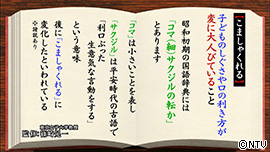 【こましゃくれる】
子どものしぐさや口の利き方が
変に大人びていること
昭和初期の国語辞典には
「コマ(細)サクジルの転か」
とあります
「コマ」は小さいことを表し
「サクジル」は平安時代の古語で
「利口ぶった
生意気な言動をする」
という意味
後に「こましゃくれる」に
変化したといわれている
※諸説あり
©NTV